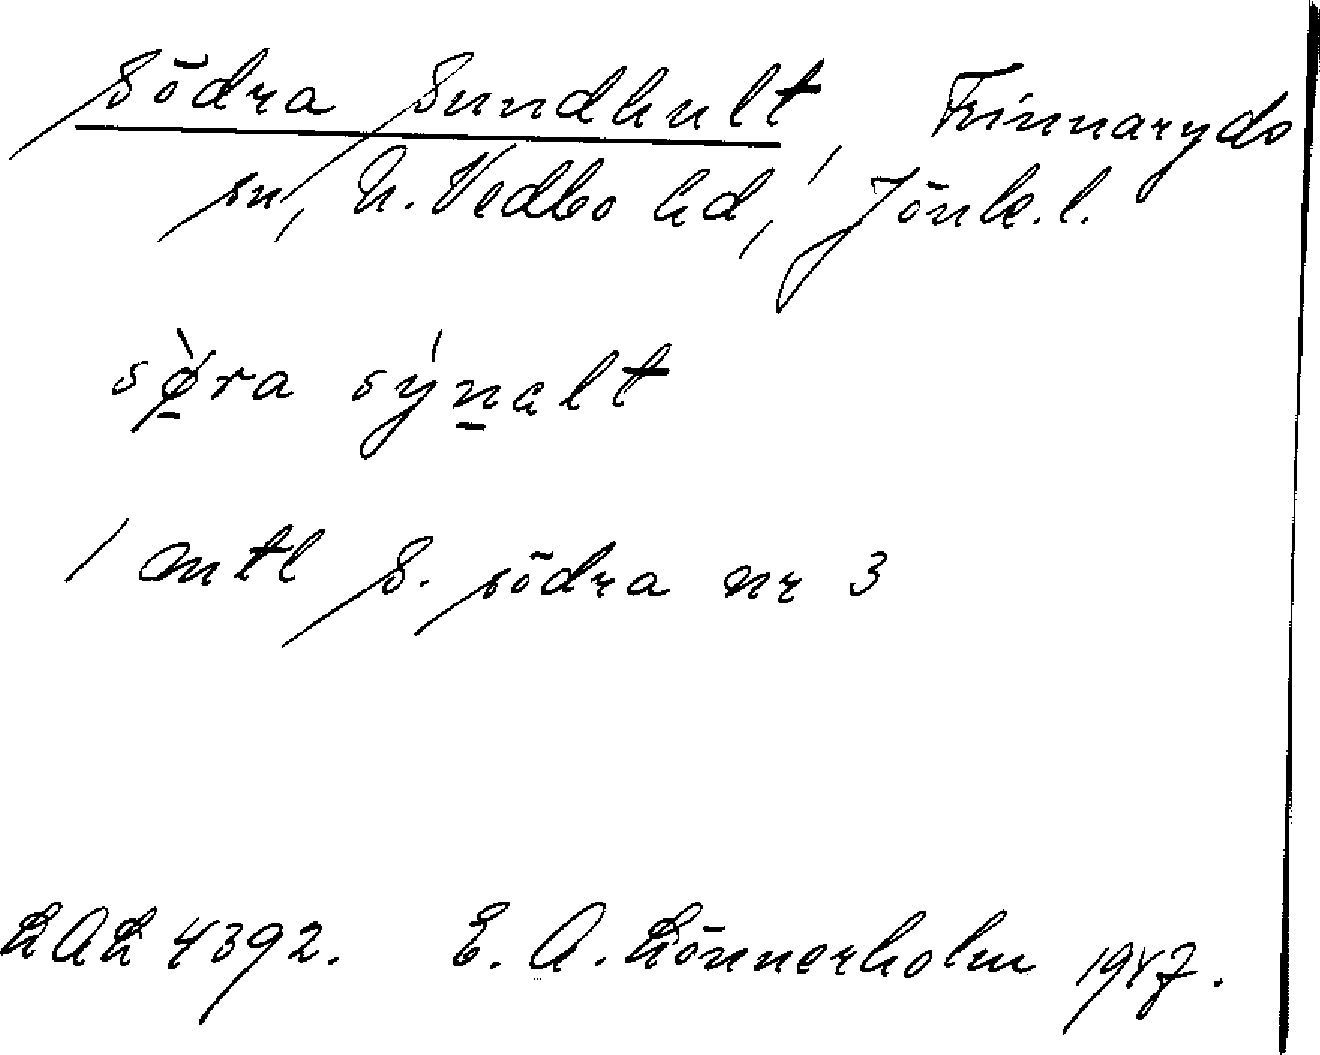 Södra Sundhult, Frinnaryds
sn, N. Vedbo hd, Jönk. l.
sø̱̀ra sýn̲alt
1 mtl S. södra nr 3
LAL 4392. E. A. Lönnerholm 1947.